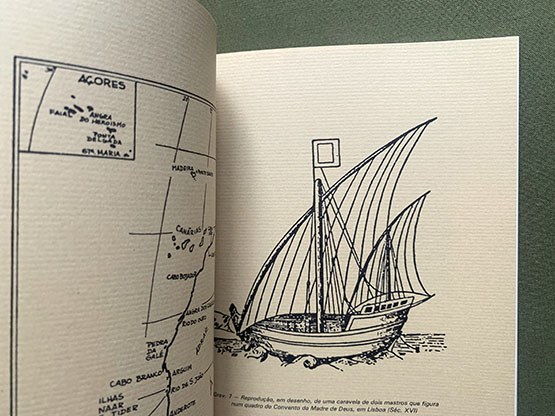 AÇORES
FAIAL
ANGRA
DO HEROISMO
PONTA
DELGADA
STª MARIA
MADEIRA
CANÁRIAS
CABO BOJADOR
ANGRA DOS
RODO OURO
PEDRA
DA
GALÉ
CABO BRANCO
ARGUIM
RIO DA S. JOÃO
ILHAS
NAAR
TIDER
ANDEROTE
Grav. 7 — Reprodução, em desenho, de uma caravela de dois mastros que figura
num quadro do Convento da Madre de Deus, em Lisboa (Séc. XVI)